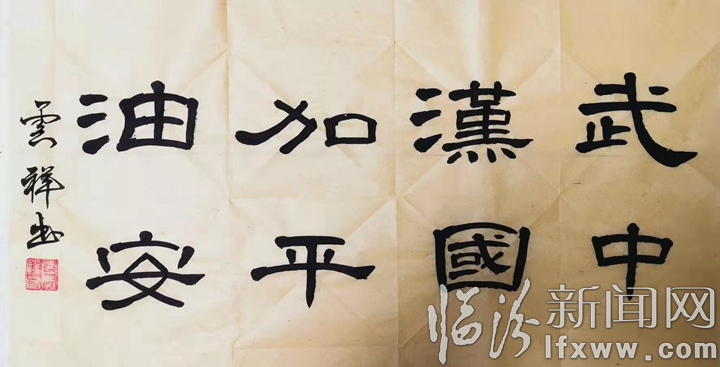 武漢加油
中國平安
雲祥书
临汾新闻网
lfxww.com